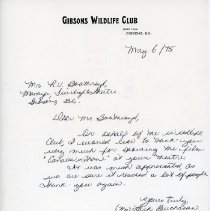 GIBSONS WILDLIFE CLUB
GIBSONS, B.C.
May 6/75
Manager, Twilight Theatre
Gibsons B.C.
Dear Mr
On behalf of the wildlife
Club, I would like to thank you
very much for showing the film
at your theatre
It was much appreciated, as
we are sure it reached a lot of people
Thank you again.
Yours truly,